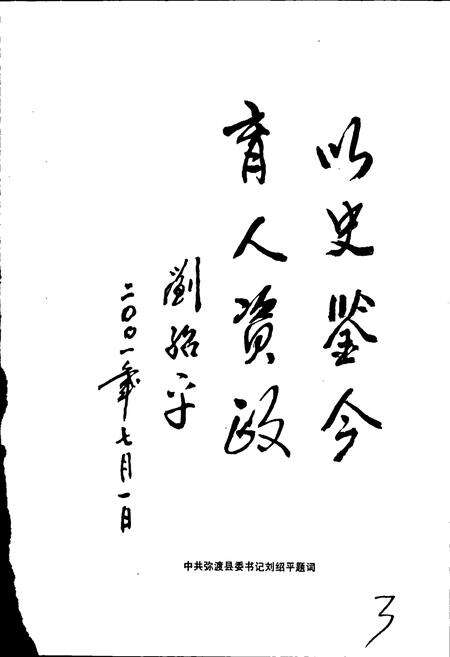 以史鉴今
育人資政
劉紹平
二〇〇一年七月一日
中共弥渡县委书记刘绍平题词
3